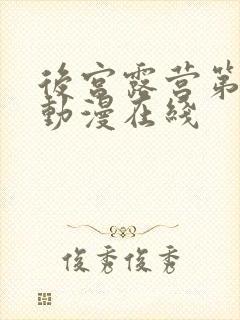 後宮露营第
動漫在綫
俊秀俊秀